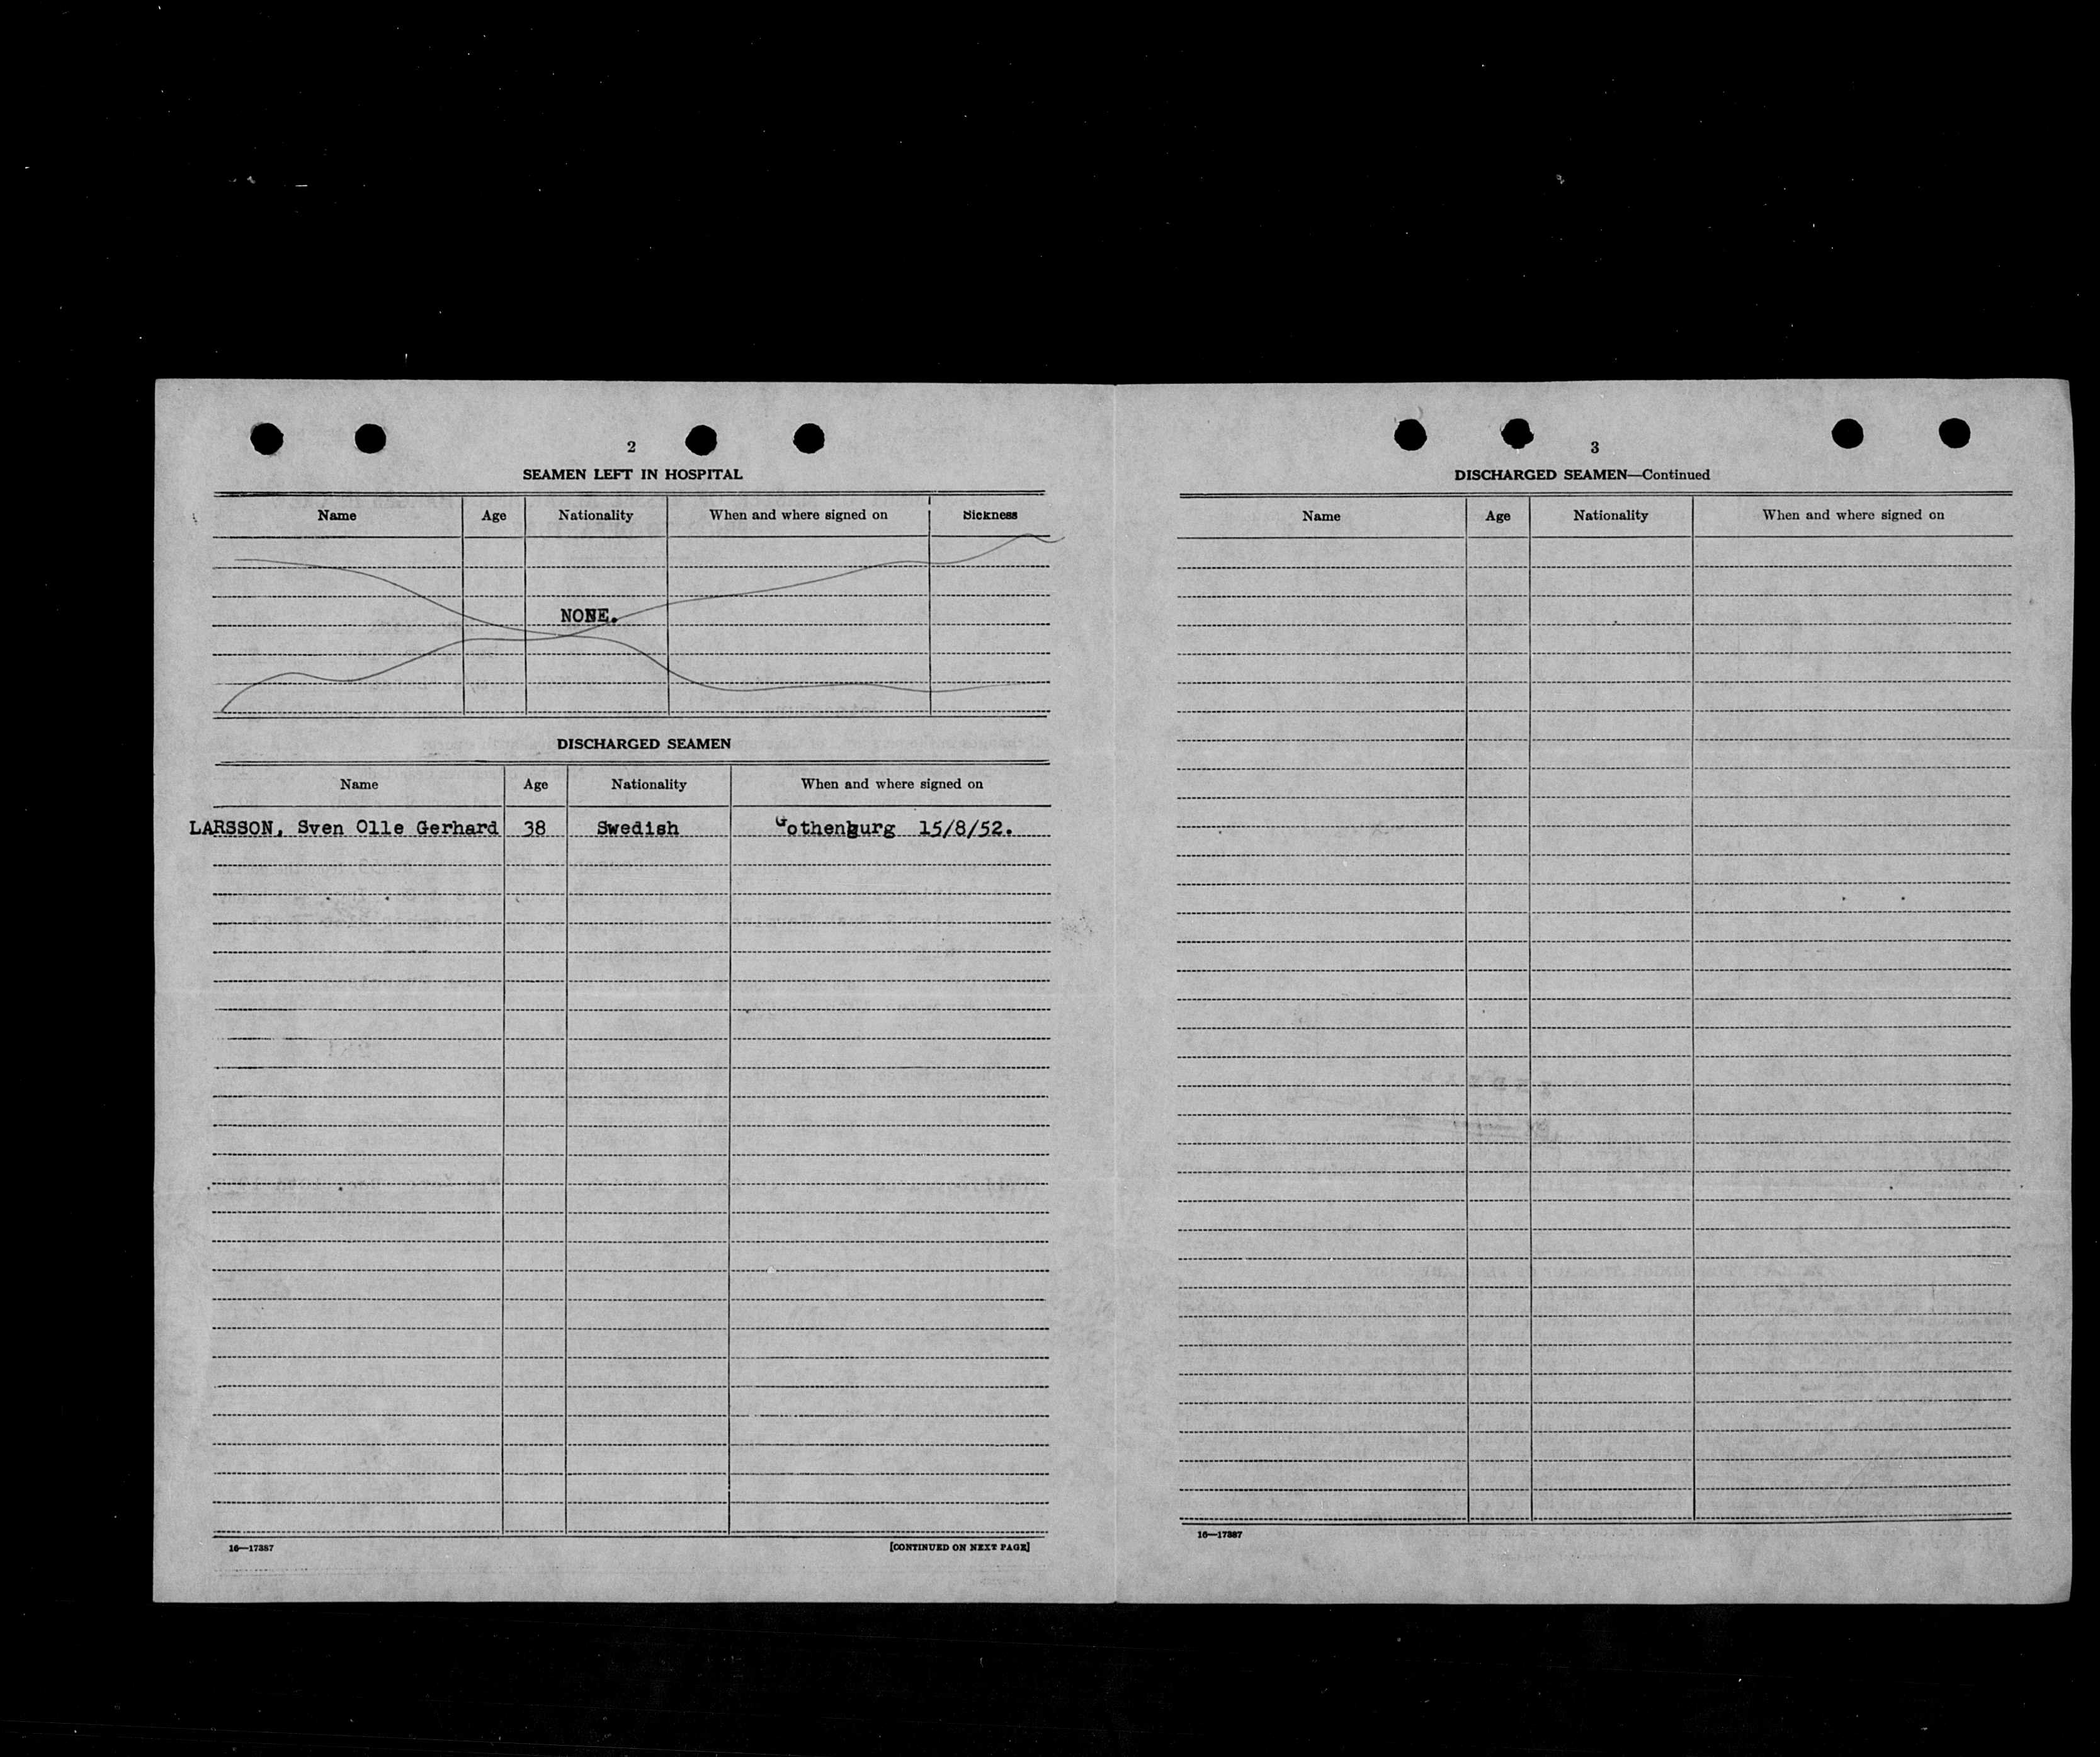 2
SEAMEN LEFT IN HOSPITAL
Name Age Nationality When and where signed on Sickness
NONE.
DISCHARGED SEAMEN
Name Age Nationality When and where signed on
LARSSON, Sven Olle Gerhard 38 Swedish Gothenburg 15/8/52.
16—17387 [CONTINUED ON NEXT PAGE]
3
DISCHARGED SEAMEN—Continued
Name Age Nationality When and where signed on
16—17387